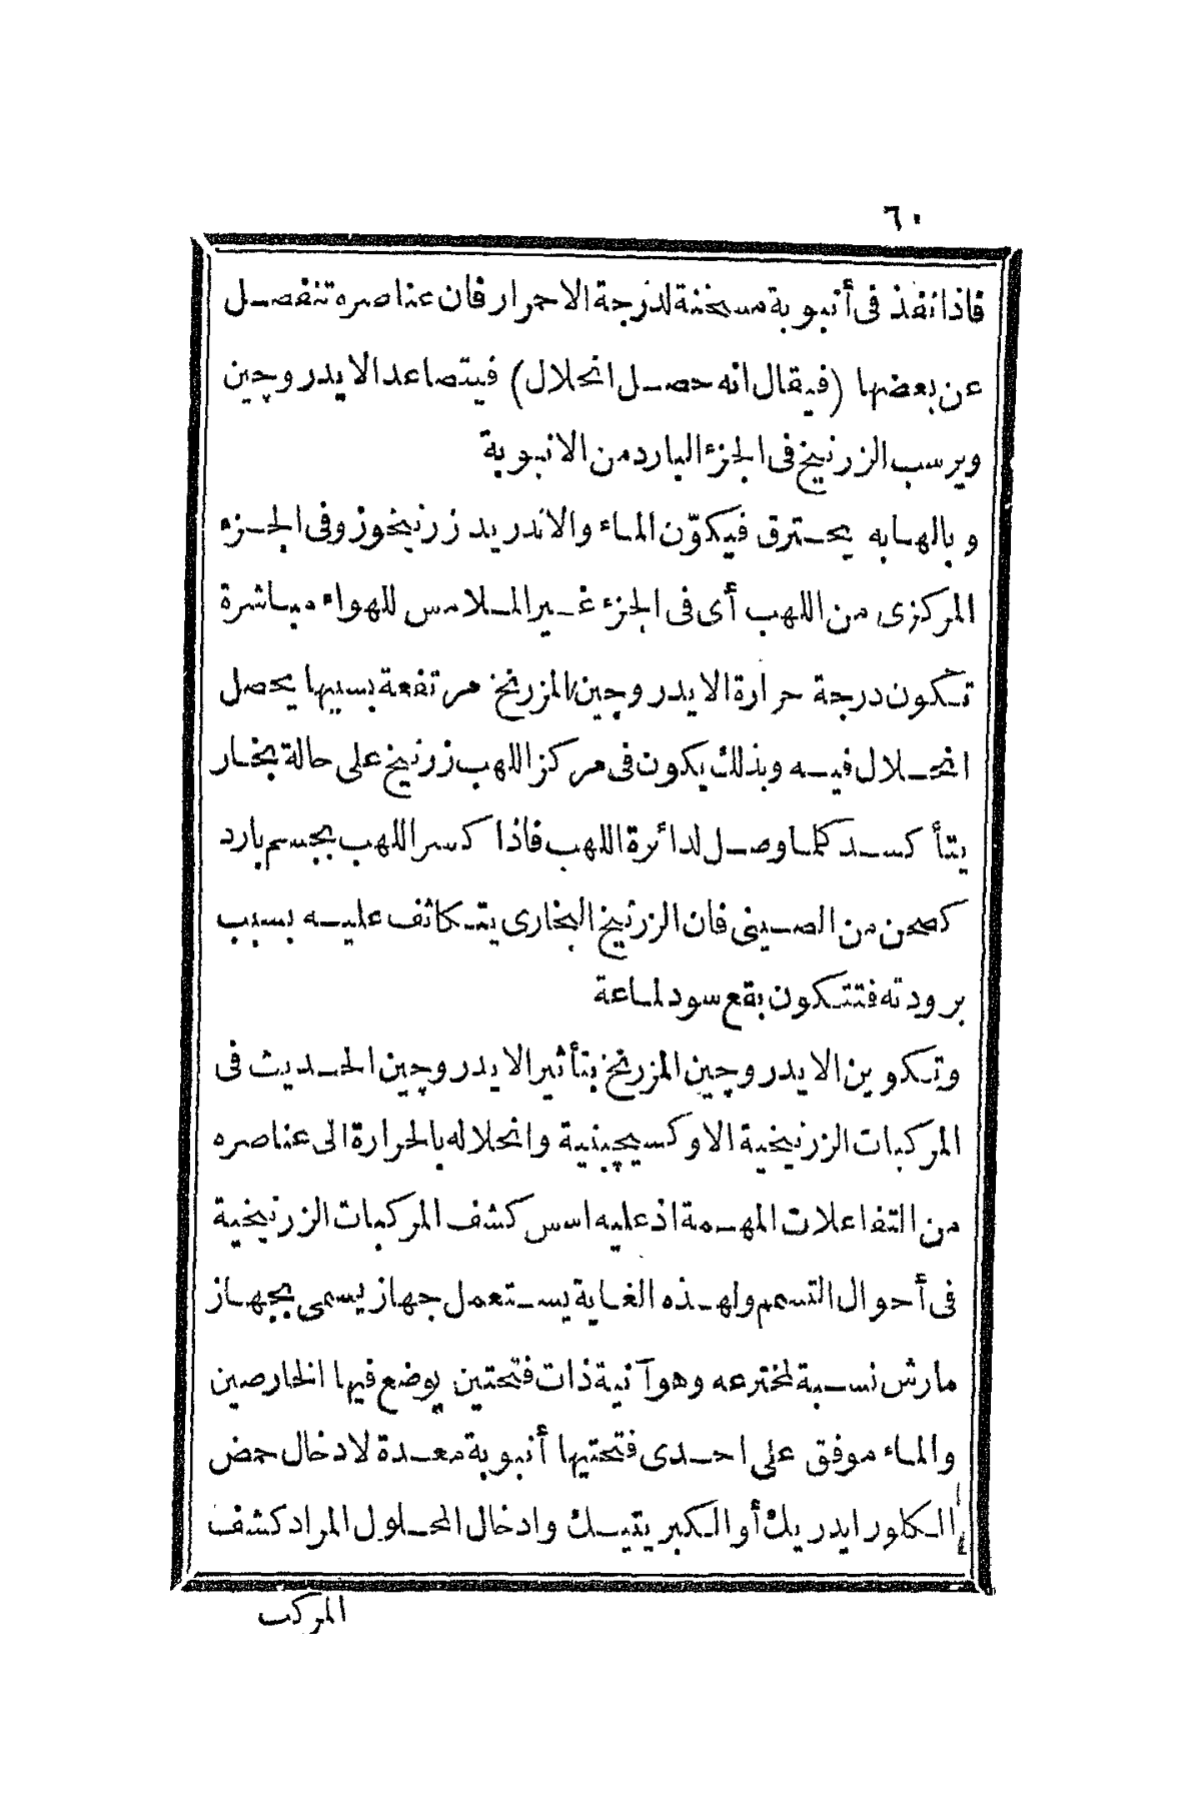 ٦٠
فاذا نفذ فى أنبوبة مسخنة لدرجة الاحمرار فان عناصره تنفصل
عن بعضها (فيقال انه حصل انحلال) فيتصاعد الايدروچين
ويرسب الزرنيخ فى الجزء البارد من الانبوبة
وبالهابه يحترق فيكوّن الماء والاندريد زرنيخوز وفى الجزء
المركزى من اللهب أى فى الجزء غير الملامس للهواء مباشرة
تكون درجة حرارة الايدروچين المزرنخ مرتفعة بسببها يحصل
انحلال فيه وبذلك يكون فى مركز اللهب زرنيخ على حالة بخار
يتأكسد كلما وصل لدائرة اللهب فاذا كسر اللهب بجسم بارد
كصحن من الصينى فان الزرنيخ البخارى يتكاثف عليه بسبب
برودته فتتكون بقع سود لماعة
وتكوين الايدروچين المزرنخ بتأثير الايدروچين الحديث فى
المركبات الزرنيخية الاوكسيچينية وانحلاله بالحرارة الى عناصره
من التفاعلات المهمة اذ عليه اسس كشف المركبات الزرنيخية
فى أحوال التسمم ولهذه الغاية يستعمل جهاز يسمى بجهاز
مارش نسبة لمخترعه وهو آنية ذات فتحتين يوضع فيها الخارصين
والماء موفق على احدى فتحتيها أنبوبة معدة لادخال حمض
الكلورايدريك أو الكبريتيك وادخال المحلول المراد كشف
المركب